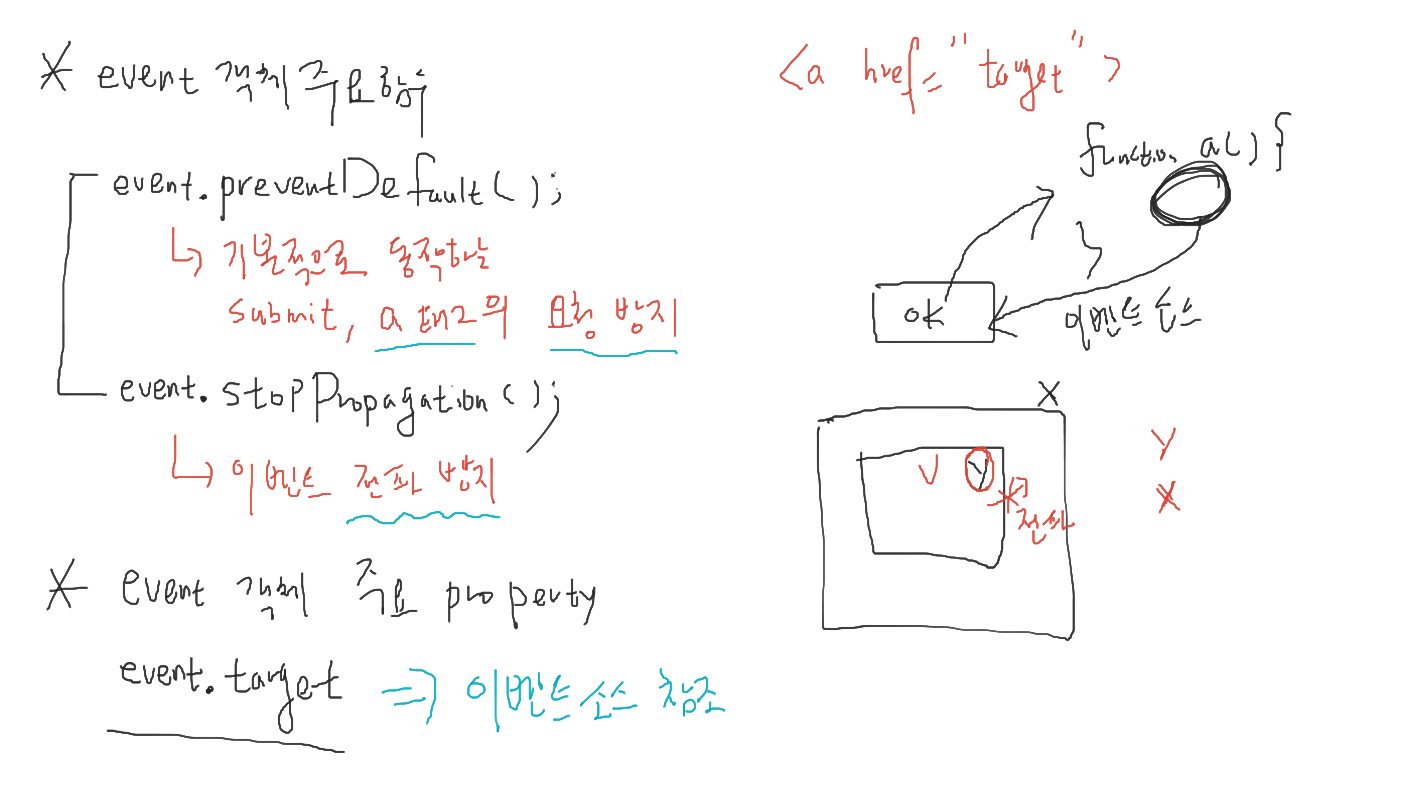 * event 객체 주요 함수
event.preventDefault();
↳ 기본적으로 동작하는
submit, a 태그의 요청 방지
event.stopPropagation();
↳ 이벤트 전파 방지
* event 객체 주요 property
event.target ⇒ 이벤트 소스 참조
<a href="target">
function a() {
}
ok
이벤트 소스
X
V
Y
전파
Y
X